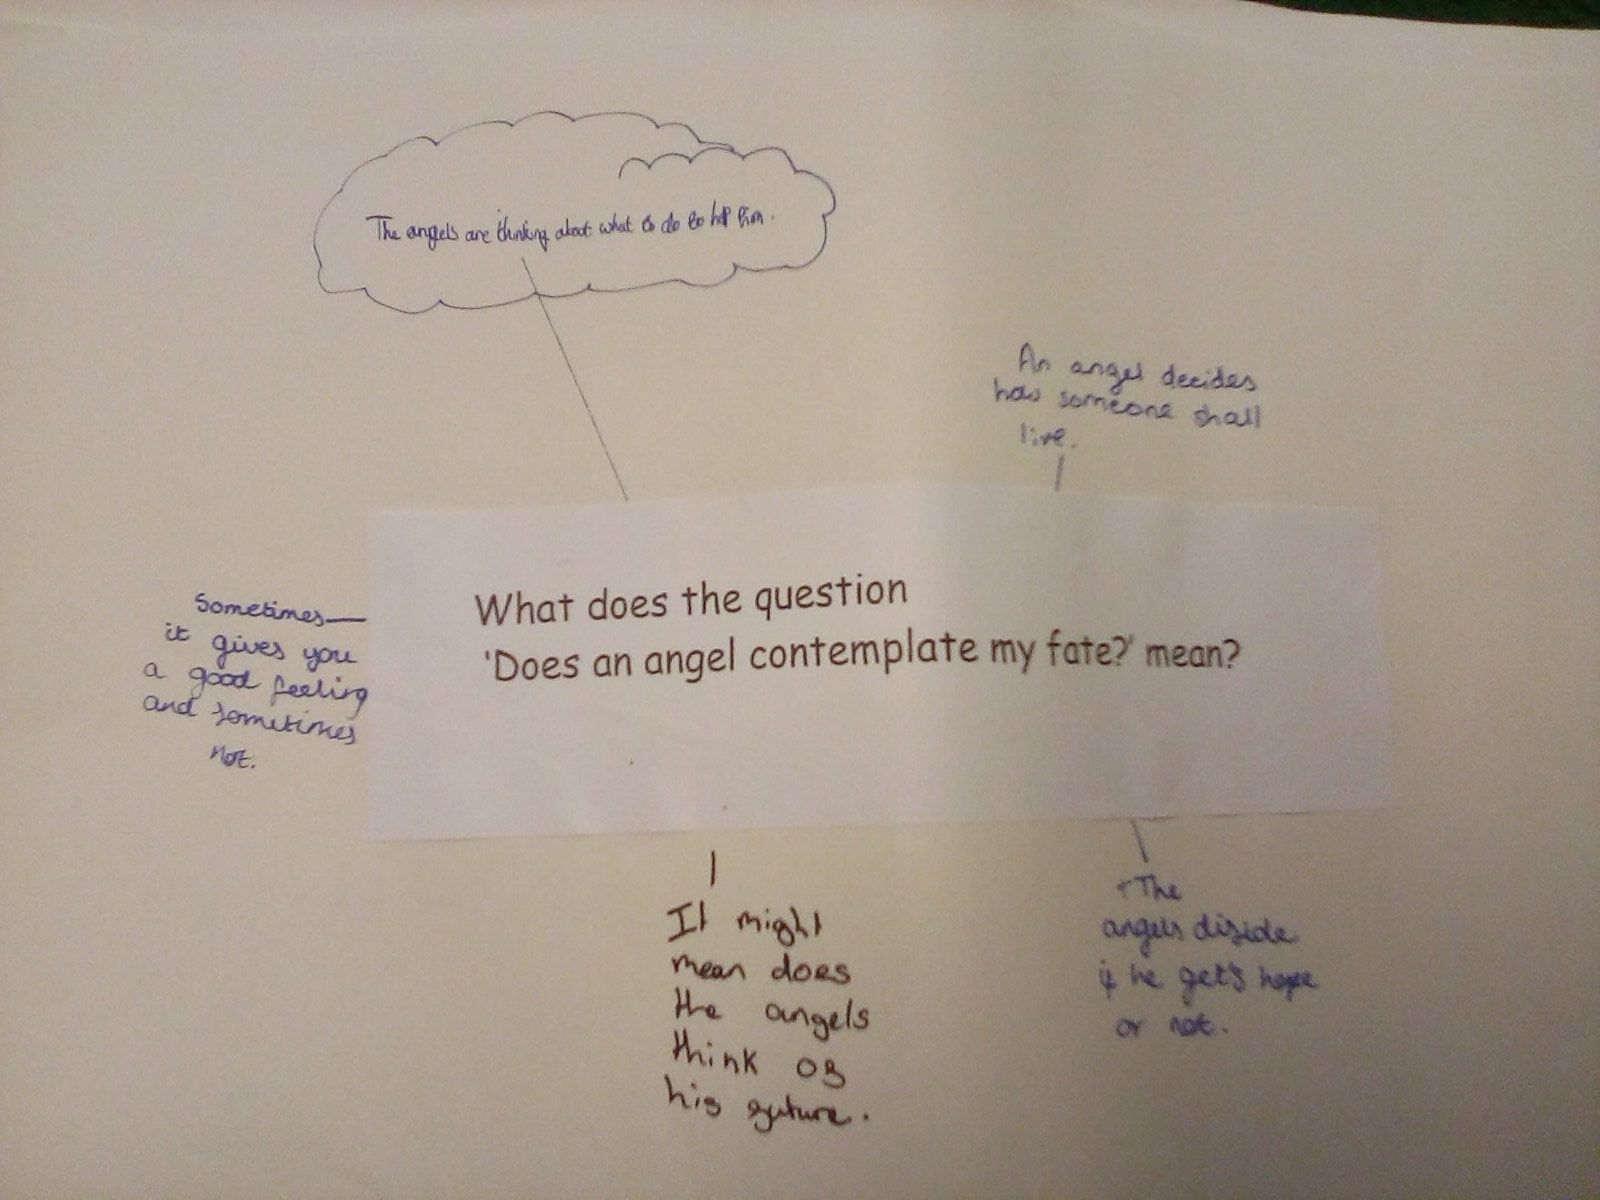 The angels are thinking about what to do to help him.
An angel decides
how someone shall
live.
What does the question
'Does an angel contemplate my fate?' mean?
Sometimes
it gives you
a good feeling
and sometimes
not.
It might
mean does
the angels
think of
his future.
The
angels diside
if he get's hope
or not.